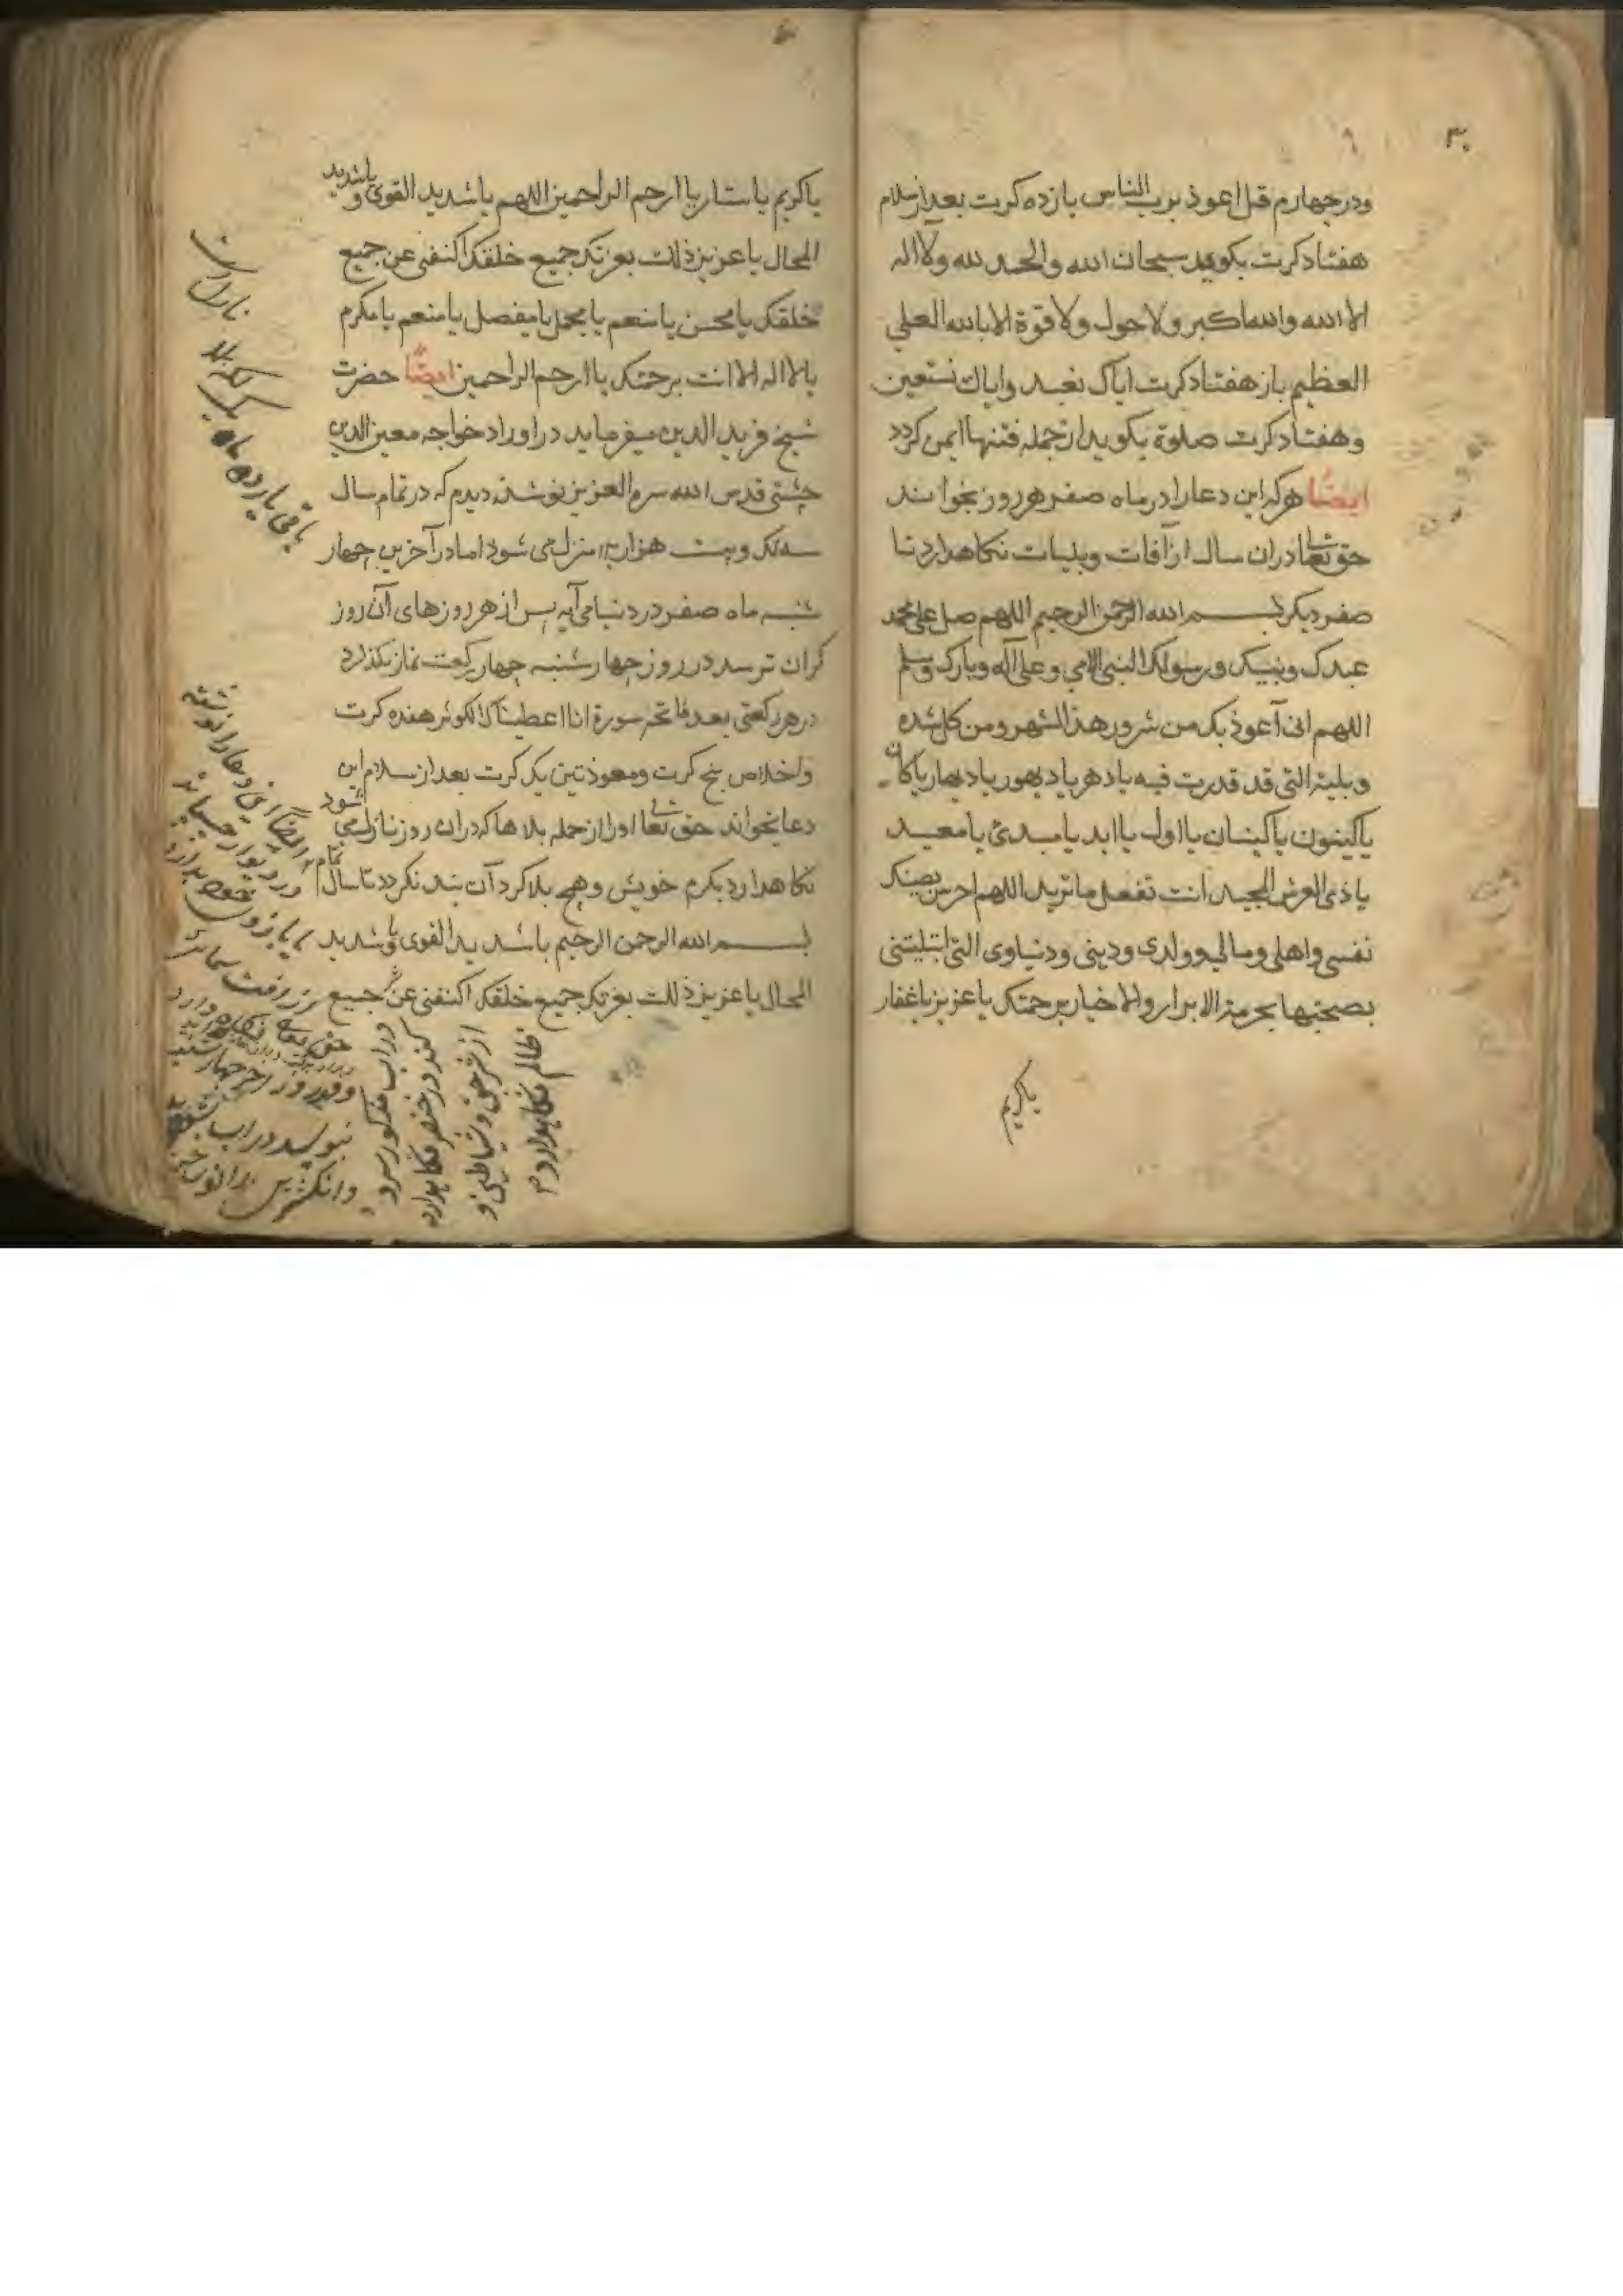 ۳۰
ودر چهارم قل اعوذ برب الناس یازده کرت بعد از سلام
هفتاد کرت بکوید سبحان الله والحمد لله ولا اله
الا الله والله اکبر ولا حول ولا قوة الا بالله العلی
العظیم باز هفتاد کرت ایاک نعبد وایاک نستعین
وهفتاد کرت صلوة بکوید از جمله فتنها ایمن کردد
ایضًا هرکه این دعا را در ماه صفر هر روز بخواند
حق تعالی دران سال از آفات وبلیات نکاهدارد تا
صفر دیکر بسم الله الرحمن الرحیم اللهم صل علی محمد
عبدک ونبیک ورسولک النبی الامی وعلی آله وبارک وسلم
اللهم انی آعوذ بک من شرور هذا الشهر ومن کل شده
وبلیة التی قد قدرت فیه یا دهر یا دیهور یا دیهار یا کان
یا کینون یا کینان یا اول یا ابد یا مبدئ یا معید
یا ذی العرش المجید انت تفعل ما ترید اللهم احرس بعینک
نفسی واهلی ومالی وولدی ودینی ودنیاوی التی ابتلیتنی
بصحبتها بحرمة الابرار والاخیار برحمتک یا عزیز یا غفار
یا کریم
یا کریم یا ستار یا ارحم الراحمین اللهم یا شدید القوی ویا شدید
المحال یا عزیز ذللت بعزتک جمیع خلقک اکنفنی عن جمیع
خلقک یا محسن یا منعم یا مجمل یا مفصل یا منعم یا مکرم
یا لا اله الا انت برحمتک یا ارحم الراحمین ایضًا حضرت
شیخ فرید الدین میفرماید در اوراد خواجه معین الدین
چشتی قدس الله سره العزیز نوشته دیدم که در تمام سال
سه لک وبیست هزار بلا منزل می شود اما در آخرین چهار
شنبه ماه صفر در دنیا می آید پس از هر روزهای آن روز
کران تر سد در روز چهارشنبه چهار رکعت نماز بکذارد
در هر رکعتی بعد فاتحه سورة انا اعطیناک الکوثر هفده کرت
واخلاص پنج کرت ومعوذتین یک کرت بعد از سلام این
دعا بخواند حق تعالی اورا از جمله بلاها که دران روز نازل می شود
نکاهدارد بکرم خویش وهیچ بلا کرد آن بنده نکردد تا سال تمام
بسم الله الرحمن الرحیم یا شدید القوی ویا شدید
المحال یا عزیز ذللت بعزتک جمیع خلقک اکنفنی عن شر جمیع
باقی یازده ماه
یک لکه بلا
ایضًا این دعا را نوشته
حق تعالی نکاه دارد
نبویسد در اب
در اب مذکور سرد
کند در خضر نکاهدارد
از شر جن وشیاطین و
ظالم نکاهدارد